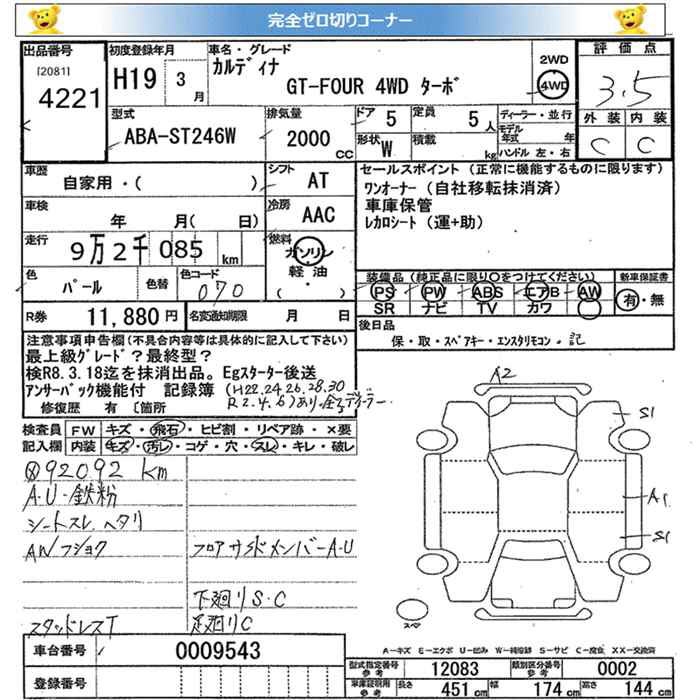 完全ゼロ切りコーナー
出品番号 [2081] 4221
初度登録年月 H19 3月
車名・グレード カルディナ GT-FOUR 4WD ターボ
2WD 4WD
評価点 3.5
外装 内装
C C
型式 ABA-ST246W
排気量 2000 CC
ドア 5 定員 5人
形状 W 積載 kg
ディーラー・並行
モデル年式 年
ハンドル 左・右
車歴 自家用・( )
シフト AT
車検 年 月( 日)
冷房 AAC
走行 9万2千085 km
燃料 ガソリン 軽油・( )
色 パール 色替 色コード 070
R券 11,880円 名変通知期限 月 日
セールスポイント (正常に機能するものに限ります)
ワンオーナー(自社移転抹消済)
車庫保管
レカロシート(運+助)
装備品(純正品に限り○をつけてください) 新車保証書
PS PW ABS エアB AW 有・無
SR ナビ TV カワ
後日品
保・取・スペアキー・エンスタリモコン・記
注意事項申告欄(不具合内容等は具体的に記入して下さい)
最上級グレード?最終型?
検R8.3.18迄を抹消出品。Egスターター後送
アンサーバック機能付 記録簿 (H22.24.26.28.30
R2.4.6)あり.全てディーラー.
修復歴 有 〔箇所
検査員 FW キズ・飛石・ヒビ割・リペア跡・×要
記入欄 内装 キズ・汚レ・コゲ・穴・スレ・キレ・破レ
92092 km
A・U・鉄粉
シートスレ ヘタリ
AWフショク フロアサイドメンバーA・U
下廻りS・C
スタッドレスT 足廻りC
A2
S1
A1
S1
スペア
車台番号 0009543
登録番号
A―キズ E―エクボ U―凹み W―補修跡 S―サビ C―腐食 XX―交換済
型式指定番号 参考 12083 類別区分番号 参考 0002
車庫証明用 参考 長さ 451cm 幅 174cm 高さ 144cm